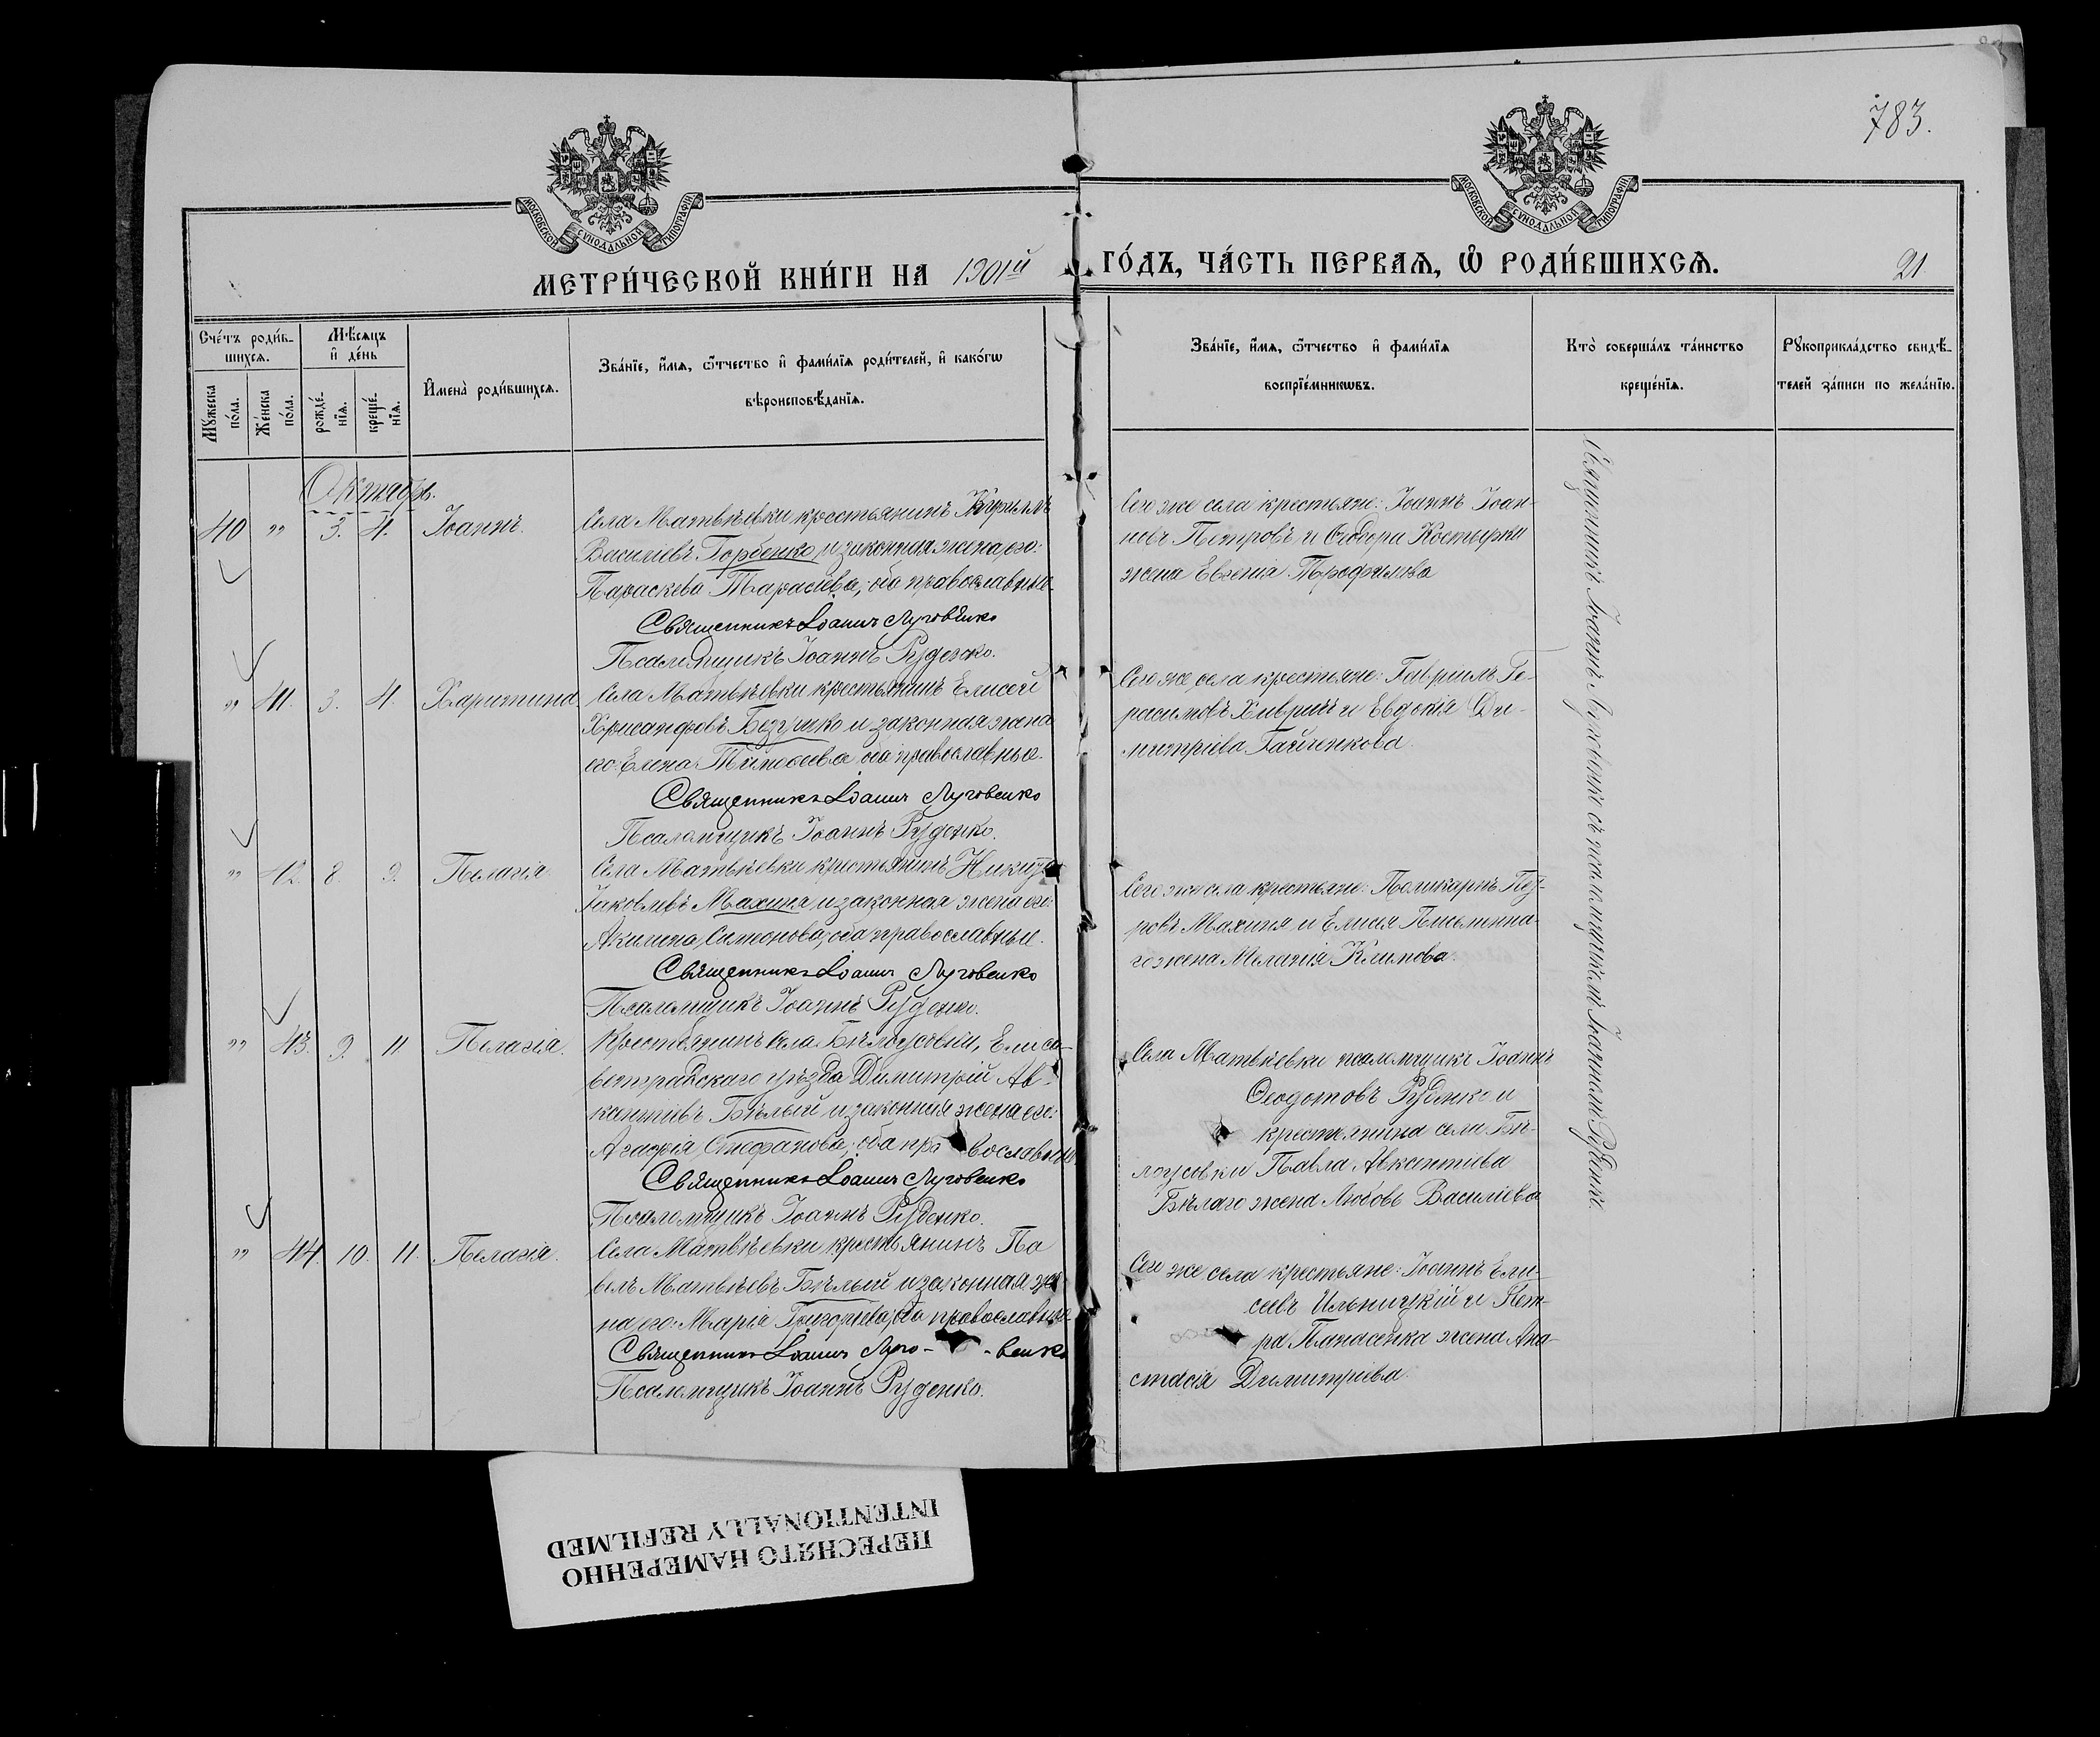 783.
МОСКОВСКОЙ СѴНОДАЛЬНОЙ ТИПОГРАФІИ
МОСКОВСКОЙ СѴНОДАЛЬНОЙ ТИПОГРАФІИ
МЕТРИ́ЧЕСКОЙ КНИ́ГИ НА 1901й ГО́ДЪ, ЧА́СТЬ ПЕРВАѦ, Ѡ҆ РОДИ́ВШИХСѦ.
21
Сче́тъ роди́в-
шихсѧ.
Мѣ́сѧцъ
и҆ де́нь
Мꙋ́жеска
по́ла.
Же́нска
по́ла.
рожде́-
нїѧ.
креще́-
нїѧ.
И҆мена̀ роди́вшихсѧ.
Зва́нїе, и҆́мѧ, ѻ҆́тчество и҆ фами́лїѧ роди́телей, и҆ како́гѡ
вѣроисповѣ́данїѧ.
Зва́нїе, и҆́мѧ, ѻ҆́тчество и҆ фами́лїѧ
воспрїе́мникѡвъ.
Кто̀ соверша́лъ та́инство
креще́нїѧ.
Рꙋкоприкла́дство свидѣ́-
телей за́писи по жела́нїю.
Октябрь.
40 " 3. 4. Іоаннъ.
Села Матвѣевки крестьянинъ Кириллъ
Василіевъ Горбенко и законная жена его:
Параскева Тарасіева, оба православные.
Священникъ Іоаннъ Луговенко
Псаломщикъ Іоаннъ Руденко.
Сего же села крестьяне: Іоаннъ Іоан-
новъ Петровъ и Ѳеодора Костырки
жена Евгенія Трофимова
" 41. 3. 4. Харитина
Села Матвѣевки крестьянинъ Елисей
Хрисанфовъ Безушко и законная жена
его: Елена Тимоѳеева, оба православные.
Священникъ Іоаннъ Луговенко
Псаломщикъ Іоаннъ Руденко.
Сего же села крестьяне: Гавріилъ Ге-
расимовъ Хиврич и Евдокія Ди-
митріева Гайченкова.
" 42. 8. 9. Пелагія
Села Матвѣевки крестьянинъ Никита
Іаковлевъ Махиня и законная жена его:
Акилина Симеонова, оба православные.
Священникъ Іоаннъ Луговенко
Псаломщикъ Іоаннъ Руденко.
Сего же села крестьяне: Поликарпъ Пет-
ровъ Махиня и Елисея Письменна-
го жена Меланія Климова.
" 43. 9. 11. Пелагія.
Крестьянинъ села Бѣлоусовки, Елиса-
ветградскаго уѣзда Димитрій Ав-
ксентіевъ Бѣлый и законная жена его:
Агафія Стефанова, оба православные
Священникъ Іоаннъ Луговенко
Псаломщикъ Іоаннъ Руденко.
Села Матвѣевки псаломщикъ Іоаннъ
Ѳеодотовъ Руденко и
крестьянина села Бѣ-
лоусовки Павла Авксентіева
Бѣлаго жена Любовь Василіева
" 44. 10. 11. Пелагія.
Села Матвѣевки крестьянинъ Па
велъ Матвѣевъ Бѣлый и законная же
на его: Марія Григоріева, оба православные
Священникъ Іоаннъ Луго- -венко
Псаломщикъ Іоаннъ Руденко.
Сего же села крестьяне: Іоаннъ Ели-
сеевъ Ильницкій и Пет-
ра Панасенка жена Ана-
стасія Димитріева.
Священникъ Іоаннъ Луговенко съ псаломщикомъ Іоанномъ Руденко.
ПЕРЕСНЯТО НАМЕРЕННО
INTENTIONALLY REFILMED